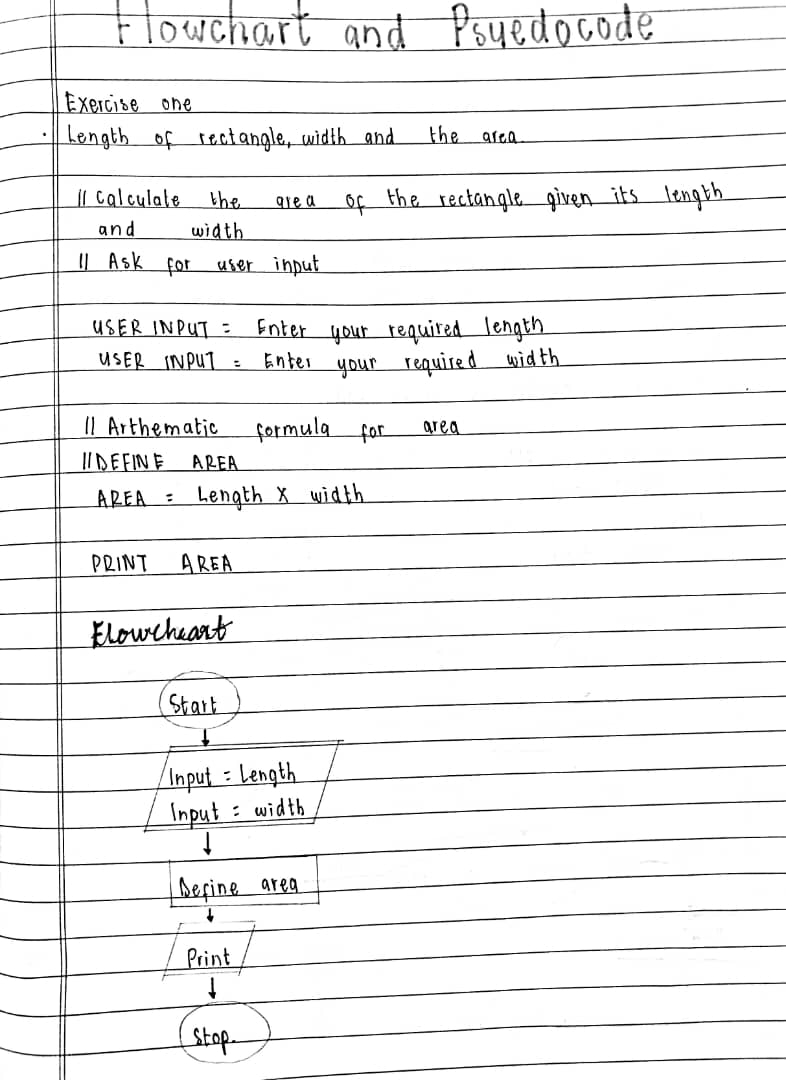 Flowchart and Psyedocode
Exercise one
Length of rectangle, width and the area.
// Calculate the area of the rectangle given its length
and width
// Ask for user input
USER INPUT = Enter your required length
USER INPUT = Enter your required width
// Arthematic formula for area
// DEFINE AREA
AREA = Length X width
PRINT AREA
Flowcheart
Start
Input = Length
Input = width
Define area
Print
Stop.